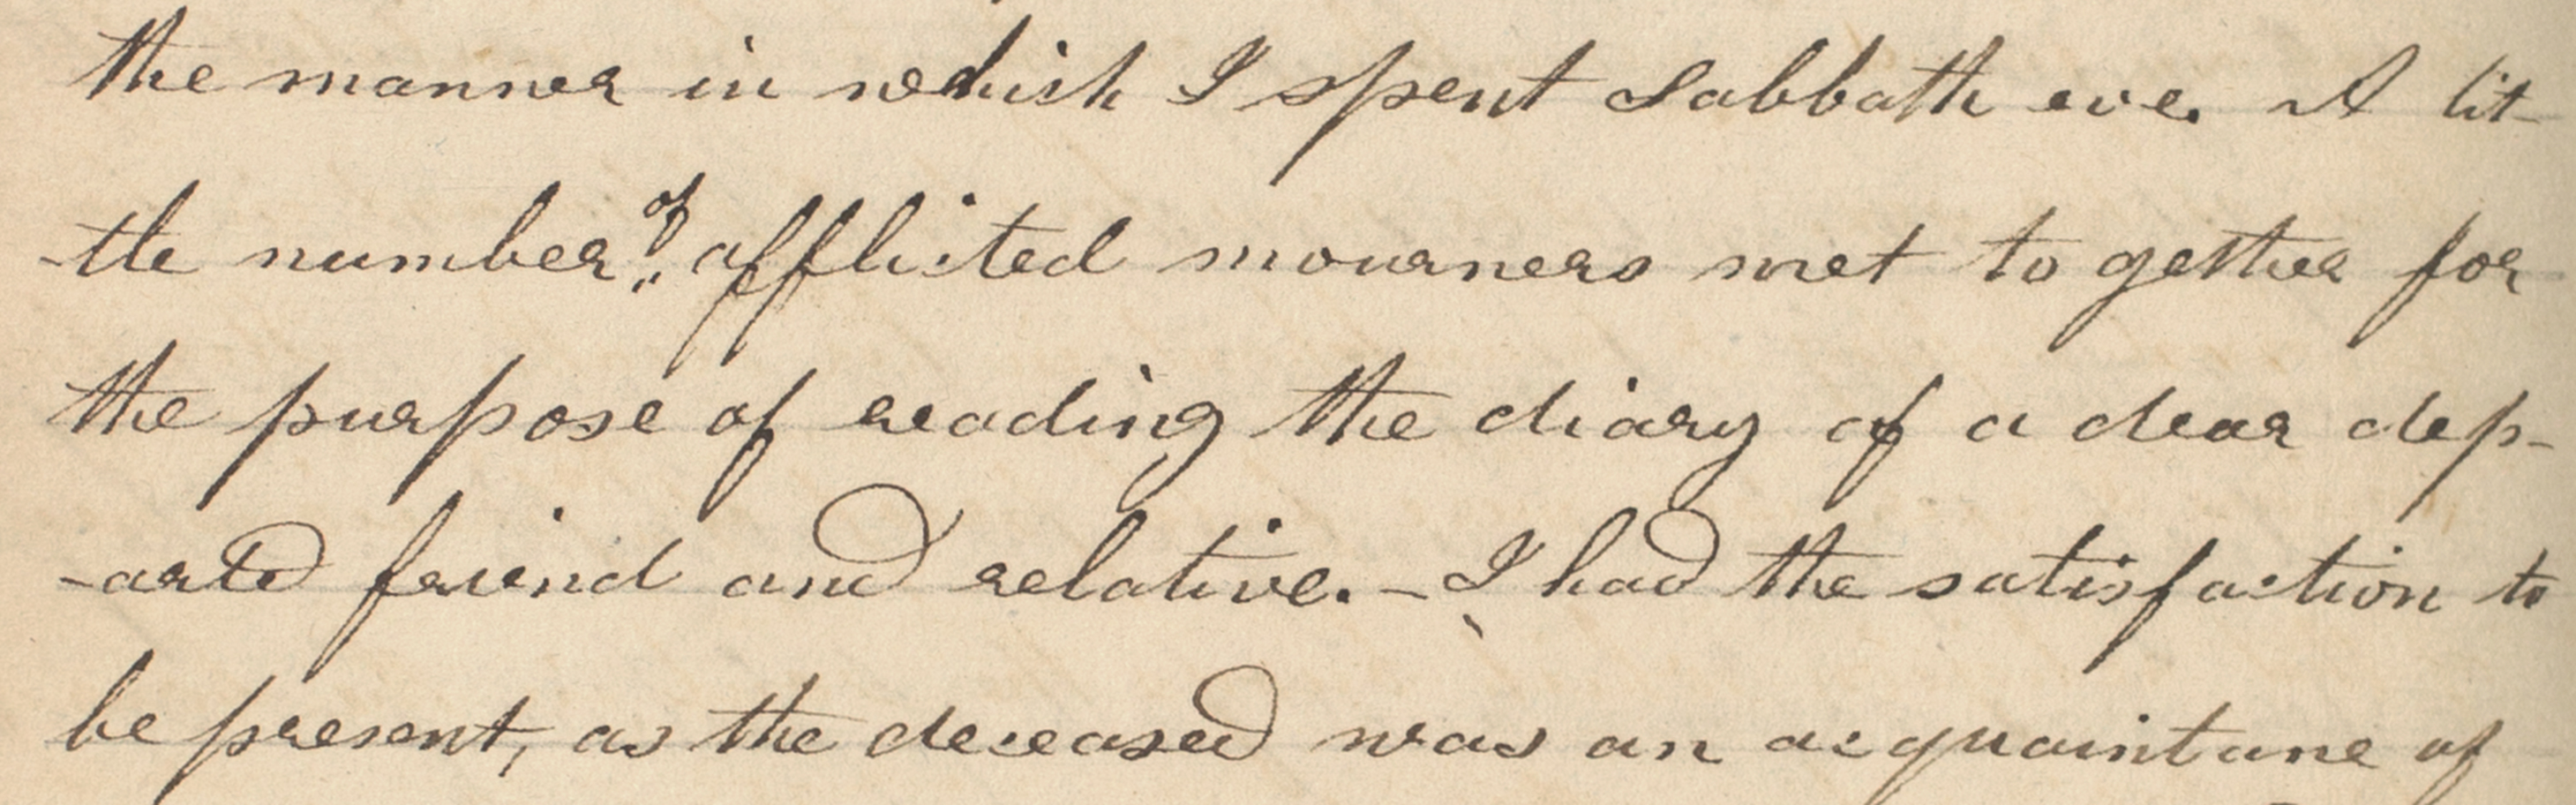 the manner in which I spent Sabbath eve. A lit-
-tle number of afflicted mourners met to gether for
the purpose of reading the diary of a dear dep-
-arted friend and relative. - I had the satisfaction to
be present, as the deceased was an acquaintane of